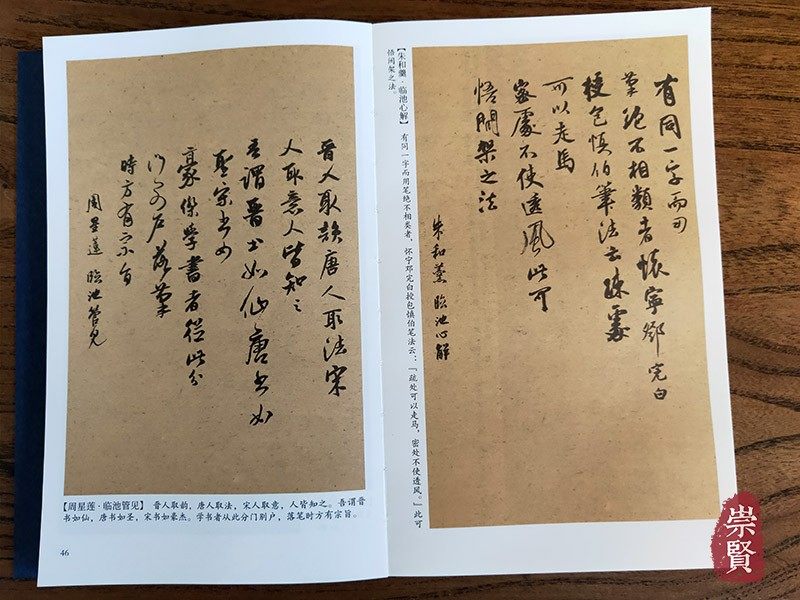 晉人取韻唐人取法宋
人取意人皆知之
吾謂晉书如仙唐书如
聖宋书如
豪傑學書者從此分
门别户落筆
時方有宗旨
周星蓮 臨池管見
【周星莲·临池管见】 晋人取韵，唐人取法，宋人取意，人皆知之。吾谓晋
书如仙，唐书如圣，宋书如豪杰。学书者从此分门别户，落笔时方有宗旨。
46
有同一字而用
筆絕不相類者懷寧鄧完白
授包慎伯筆法云疎處
可以走馬
密處不使透風此可
悟間架之法
朱和羹 臨池心解
【朱和羹·临池心解】 有同一字而用笔绝不相类者，怀宁邓完白授包慎伯笔法云：“疏处可以走马，密处不使透风。”此可
悟间架之法。
崇賢